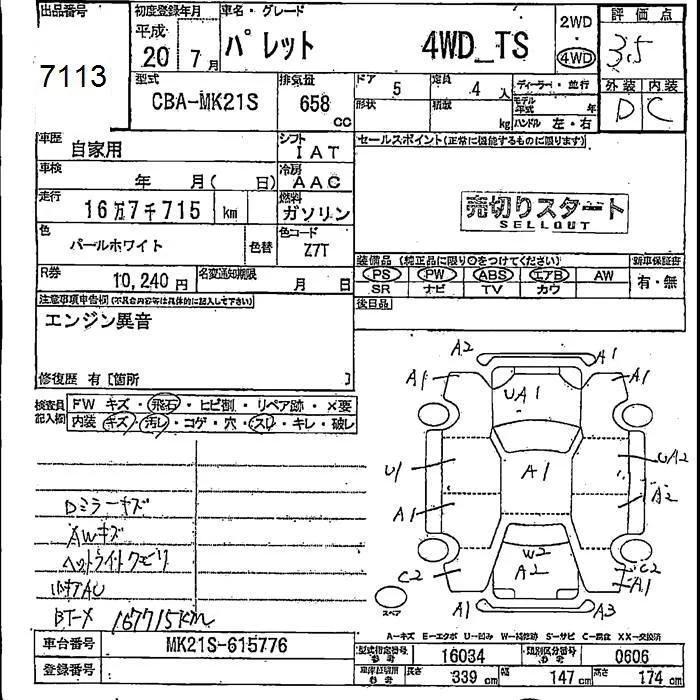 出品番号
7113
初度登録年月
平成
20 7月
車名・グレード
パレット 4WD_TS
2WD
4WD
評価点
3.5
外装 内装
D C
型式
CBA-MK21S
排気量
658
CC
ドア 5
定員 4 人
ディーラー・並行
形状
積載 kg
モデル年式 年
ハンドル 左・右
車歴
自家用
シフト
IAT
車検
年 月( 日)
冷房
AAC
走行
16万7千715 km
燃料
ガソリン
色
パールホワイト
色替
色コード
Z7T
R券
10,240円
名変通知期限
月 日
セールスポイント(正常に機能するものに限ります)
売切りスタート
SELLOUT
装備品(純正品に限り○をつけてください)
新車保証書
PS PW ABS エアB AW
SR ナビ TV カワ
有・無
後日品
注意事項申告欄(不具合内容等は具体的に記入して下さい)
エンジン異音
修復歴 有 [箇所 ]
検査員記入欄
FW キズ・飛石・ヒビ割・リペア跡・×要
内装・キズ・汚レ・コゲ・穴・スレ・キレ・破レ
Dミラーキズ
AWキズ
ヘッドライトクモリ
BTーメ 167715km
A2
A1
A1
A1
UA1
U1
A1
UA2
A1
A2
W2
A2
C2
C2
A1
A1
A3
スペア
A－キズ E－エクボ U－凹み W－補修跡 S－サビ C－腐食 XX－交換済
車台番号
MK21S-615776
登録番号
型式指定番号 参考
16034
類別区分番号 参考
0606
長さ 339 cm
幅 147 cm
高さ 174 cm